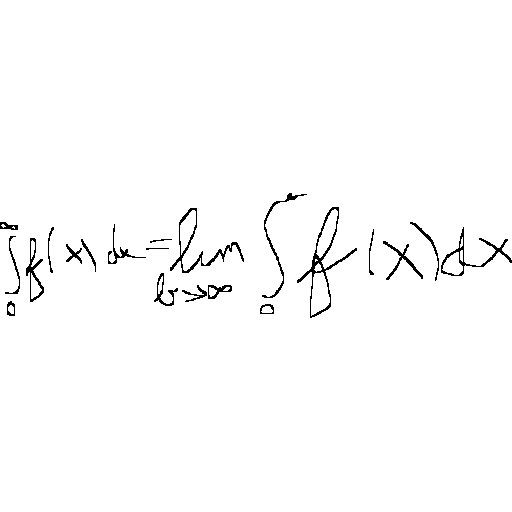 ∫₀^∞ f(x) dx = lim_{b→∞} ∫₀ f(x) dx